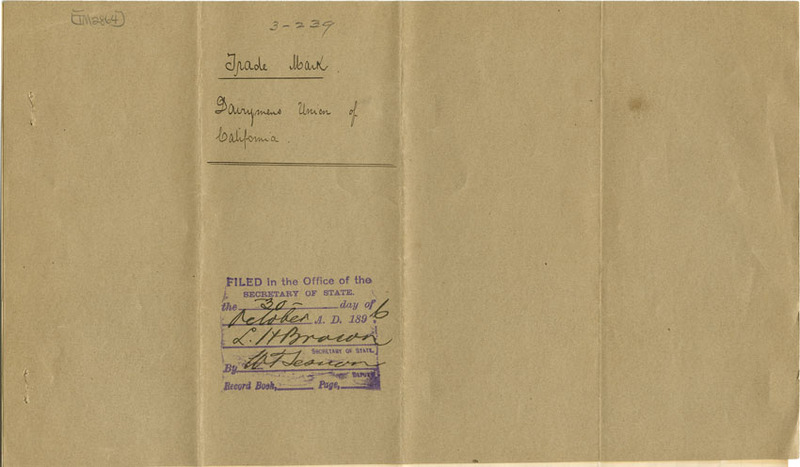 TM2864
3-239
Trade Mark.
Dairymens Union of
California.
FILED in the Office of the
SECRETARY OF STATE.
the 30- day of
October A. D. 1896
L. H Brown
SECRETARY OF STATE.
By
DEPUTY
Record Book, Page,